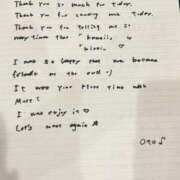 Thank you so much for today.
Thank you for coming me today.
Thank you for telling me so
many times that "kawaii,
I was so happy that we became
friends at the end :)
It was your time with
I was enjoy it ♡
Let's meet again